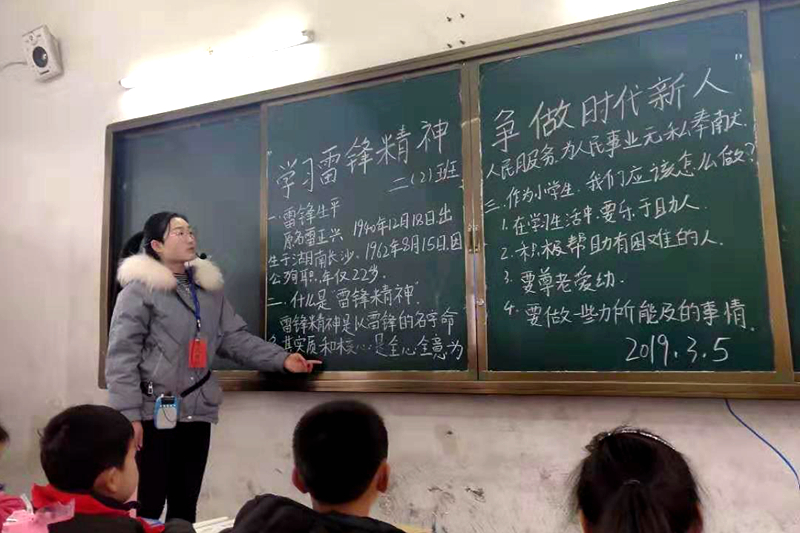 学习雷锋精神
二(2)班
一.雷锋生平
原名雷正兴 1940年12月18日出
生于湖南长沙.1962年8月15日因
公殉职,年仅22岁.
二.什么是"雷锋精神".
雷锋精神是以雷锋的名字命
名其实质和核心是全心全意为
争做时代新人
人民服务,为人民事业无私奉献.
三.作为小学生.我们应该怎么做?
1.在学习生活中.要乐于助人.
2.积极帮助有困难的人.
3.要尊老爱幼.
4.要做一些力所能及的事情.
2019.3.5